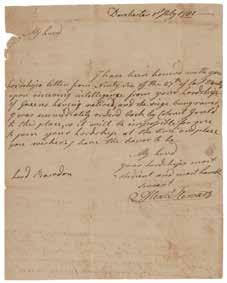 Dorchester 1st July 1781
My Lord
I have been honored with your
Lordships letter from Ninty Six of the 27th of
your receiving intelligence from your Lordship
of Greens having retired, and the siege being
I was immediately ordered back by Colonel Gould
to this place, so it will be impossible for me
to join your Lordship at the time and place
you wish. I have the honor to be
My Lord
your Lordships most
obedient and most humble
servant
Stewart
Lord Rawdon